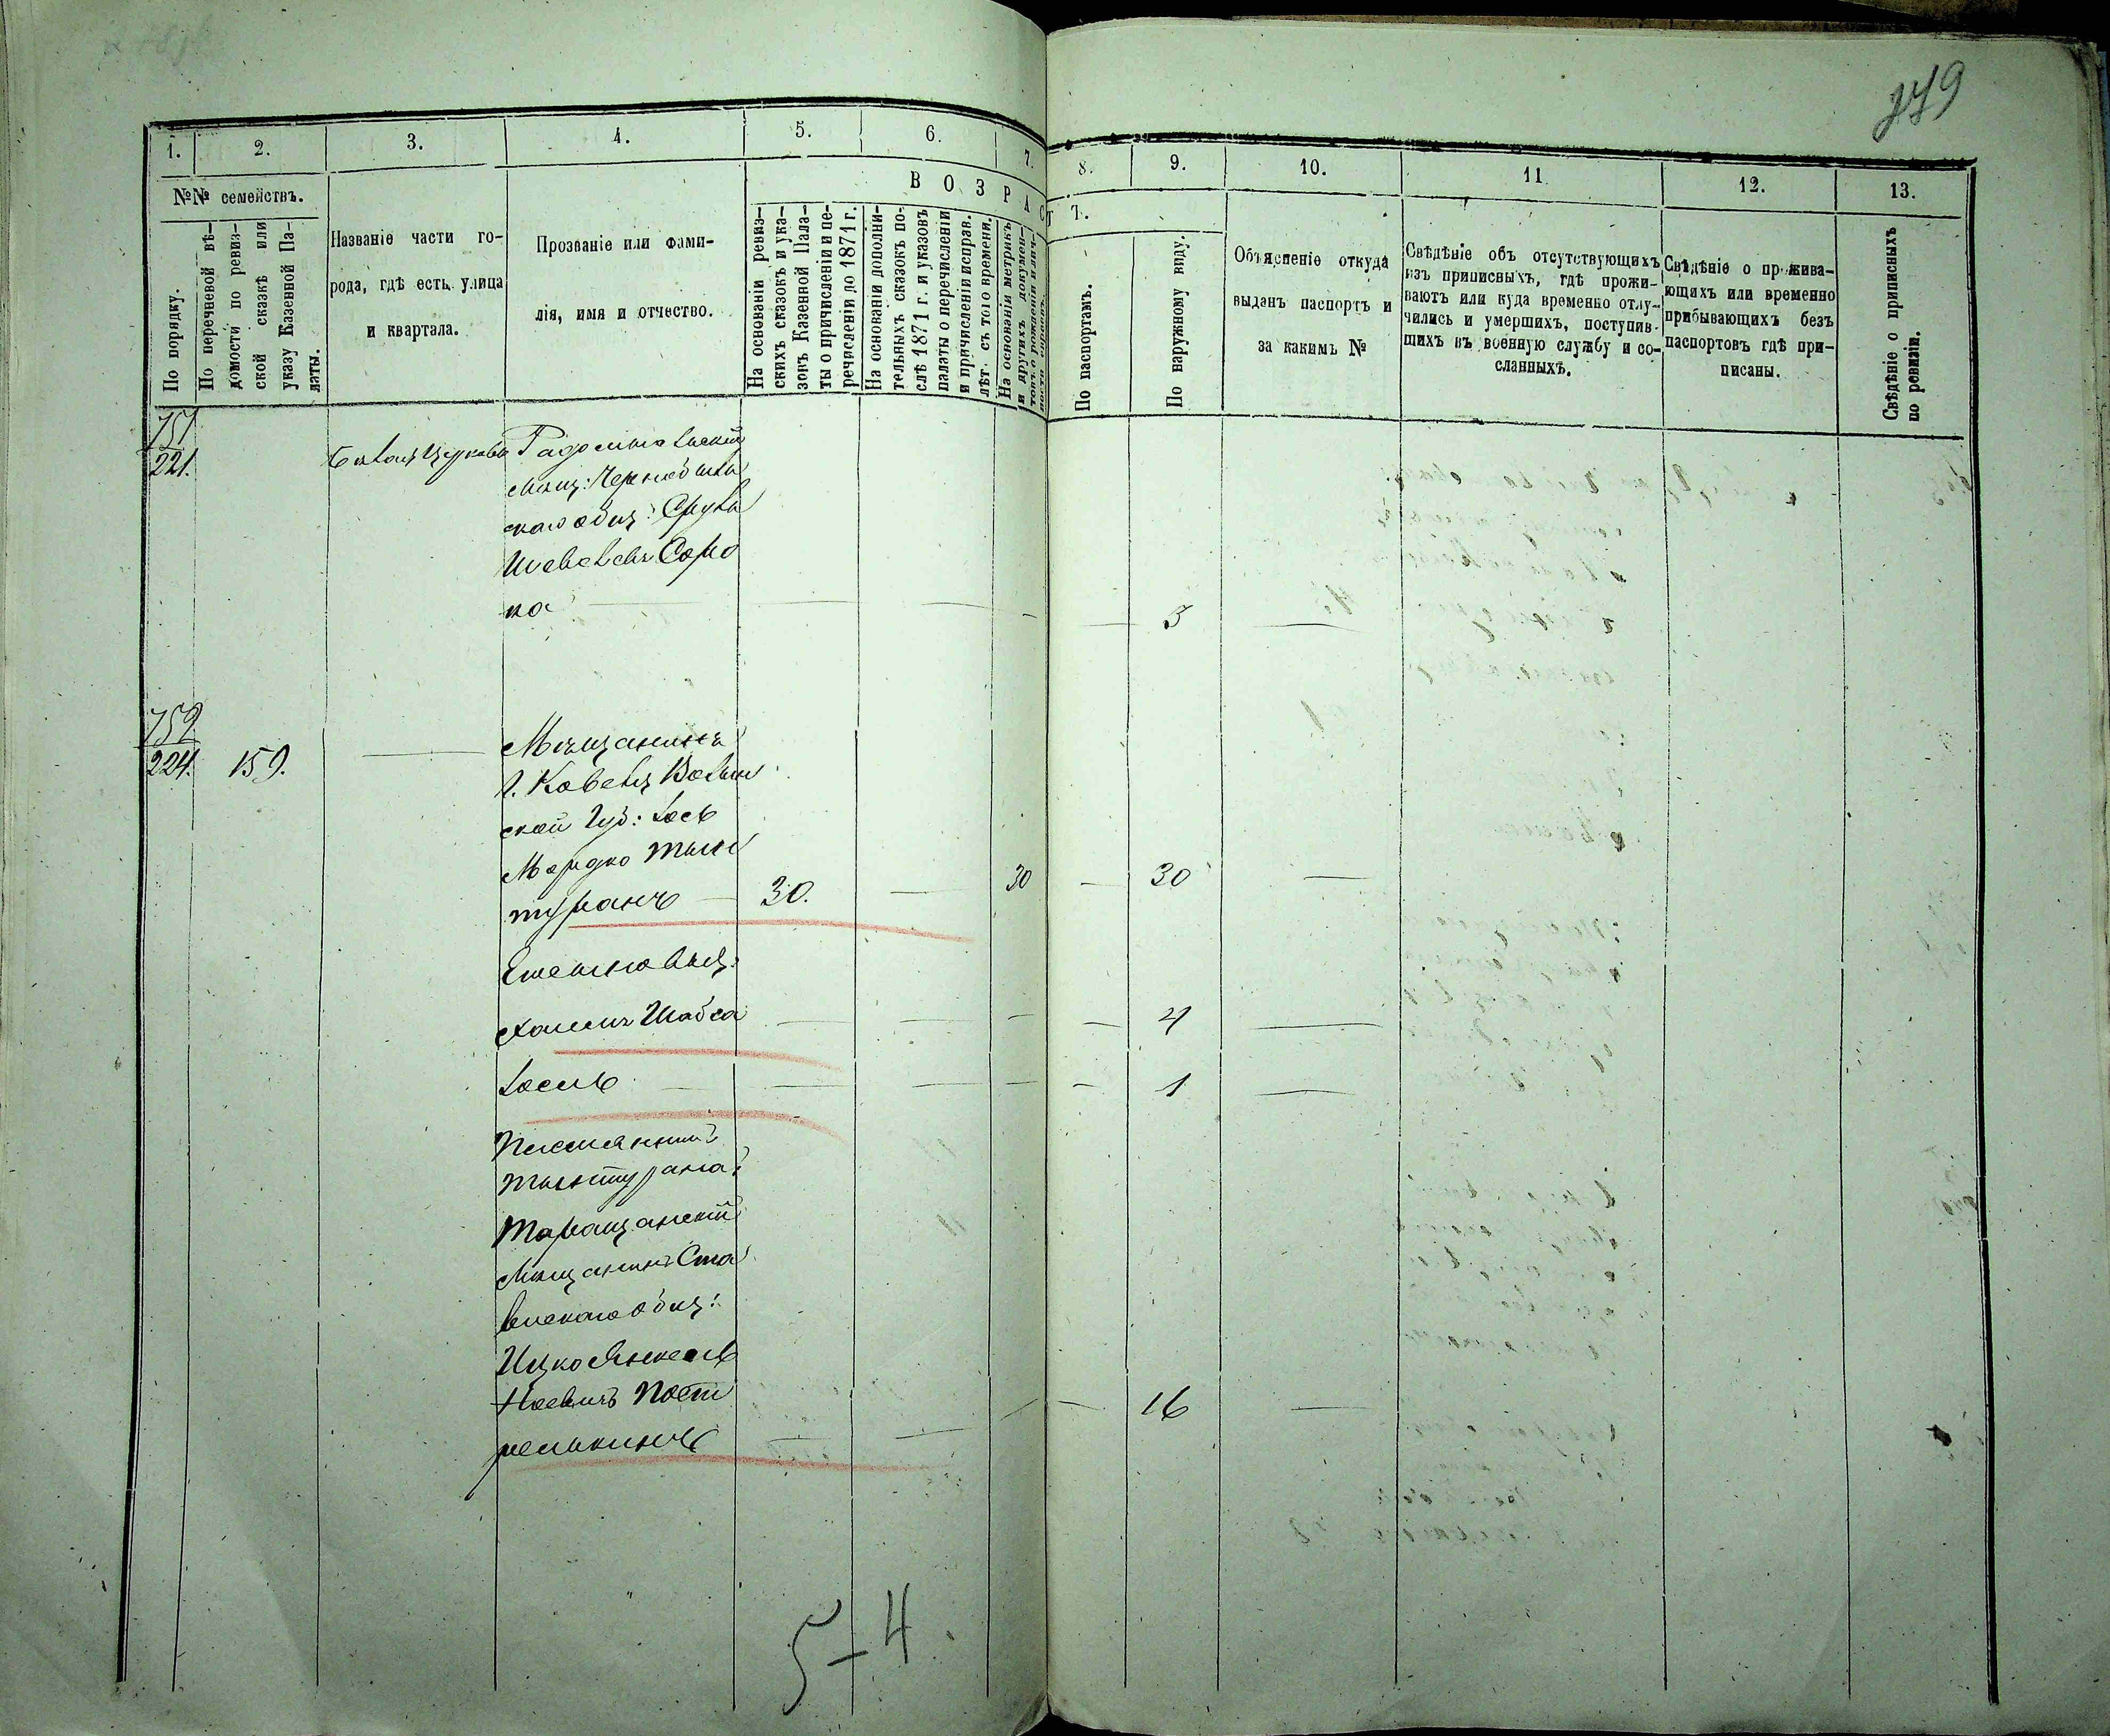 179
1.
2.
3.
4.
5.
6.
7.
8.
9.
10.
11
12.
13.
№№ семействъ.
ВОЗРАСТ Т.
По порядку.
По перечневой вѣ-
домости по ревиз-
ской сказкѣ или
указу Казенной Па-
латы.
Названіе части го-
рода, гдѣ есть улица
и квартала.
Прозваніе или фами-
лія, имя и отчество.
На основаніи ревиз-
скихъ сказокъ и ука-
зовъ Казенной Пала-
ты о причисленіи и пе-
речисленіи до 1871 г.
На основаніи дополни-
тельныхъ сказокъ по-
слѣ 1871 г. и указовъ
палаты о перечисленіи
и причисленіи исправ.
лѣт. съ того времени.
На основаніи метрикъ
и другихъ докумен-
товъ о рожденіи и лич-
ности
По паспортамъ.
По наружному виду.
Объясненіе откуда
выданъ паспортъ и
за какимъ №
Свѣдѣніе объ отсутствующихъ
изъ приписныхъ, гдѣ прожи-
ваютъ или куда временно отлу-
чились и умершихъ, поступив-
шихъ въ военную службу и со-
сланныхъ.
Свѣдѣніе о прожива-
ющихъ или временно
прибывающихъ безъ
паспортовъ гдѣ при-
писаны.
Свѣдѣніе о приписныхъ
по ревизіи.
751
221. Бѣлая Церковь Радомысльскій
мѣщ: Чернобыль
скаго общ: Сруль
Шевелевъ Соро
ка — — — — — 3 —
752
224. 159. — Мѣщанинъ
г. Ковеля Волын
ской Губ: Іось
Мордко Тын
туранъ — 30. — 30 — 30 —
Его сыновья:
Хаимъ Шабса — — — — 4 —
Іосель — — — — 1 —
Тынтурана:
Таращанскій
мѣщанинъ Ста
вискаго общ:
Ицко Янкель
Ноевичъ Пост
релькинъ — — — — 16 —
5–4